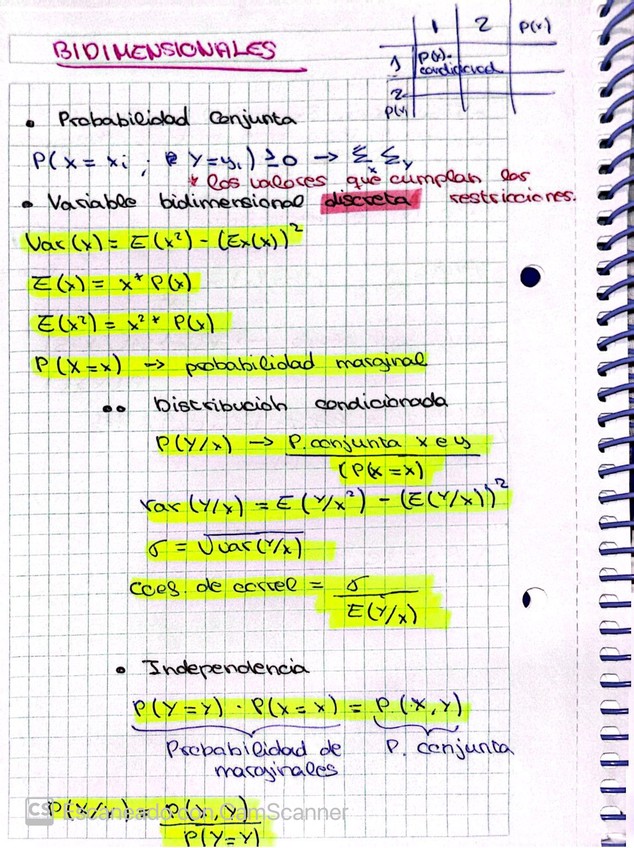 BIDIMENSIONALES
1 2 P(x)
1 P(x).
condicionad
2
P(y)
• Probabilidad conjunta
P(X = xi ; Y = yi) ≥ 0 → Σx Σy
* los valores que cumplan las
restricciones.
• Variable bidimensional discreta
Var(x) = E(x²) - (Ex(x))²
E(x) = x * P(x)
E(x²) = x² * P(x)
P(X=x) → probabilidad marginal
•• Distribución condicionada
P(Y/x) → P. conjunta x e y
(P(x = x)
Var(Y/x) = E(Y/x²) - (E(Y/x))²
σ = √var(Y/x)
coef. de correl = σ
E(Y/x)
• Independencia
P(Y=Y) · P(X=x) = P(X,Y)
Probabilidad de P. conjunta
marginales
= P(x,Y)
P(Y=Y)
CS Escaneado con CamScanner